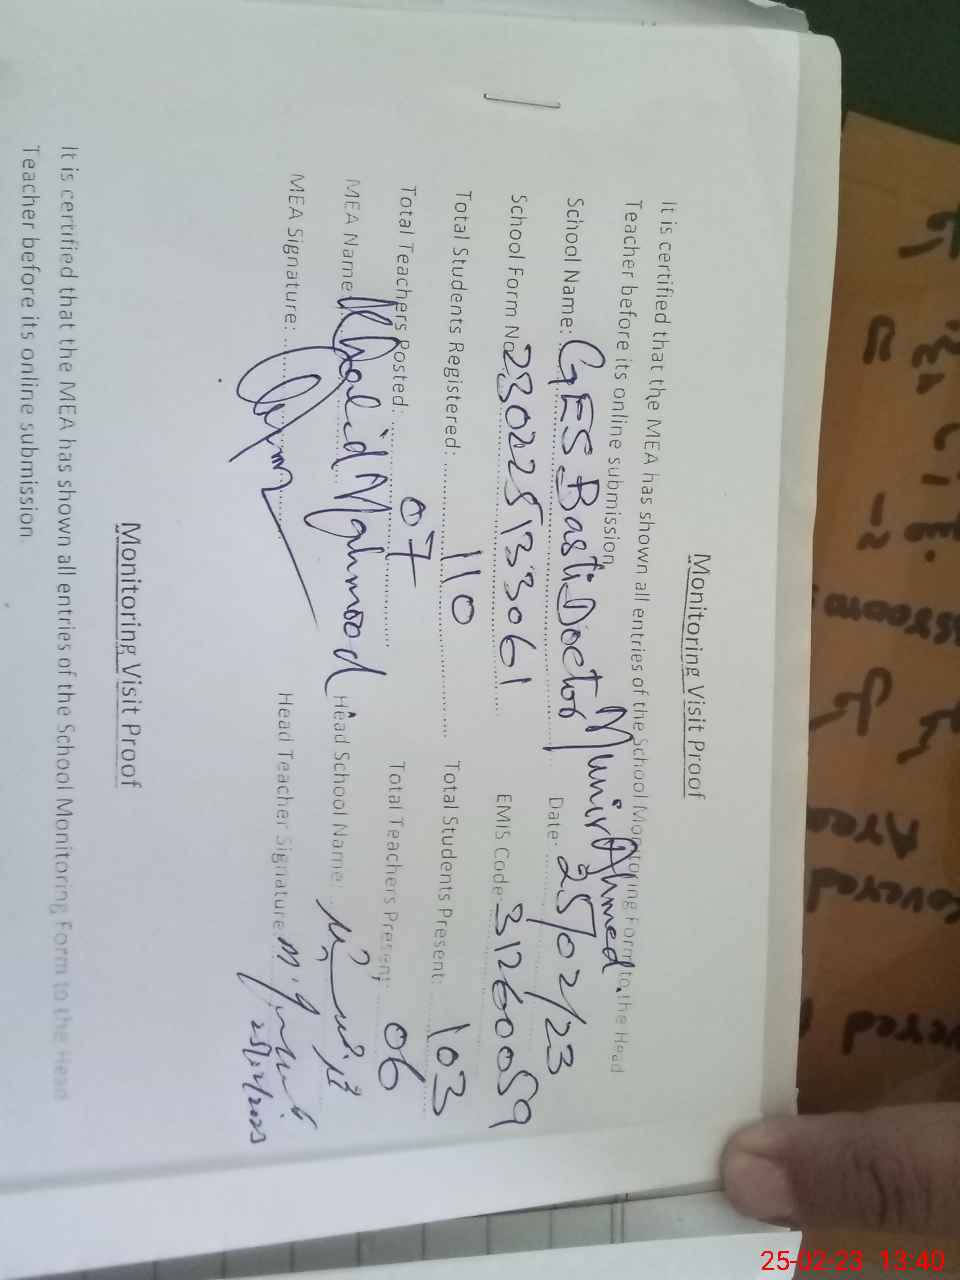 Monitoring Visit Proof
It is certified that the MEA has shown all entries of the School Monitoring Form to the Head
Teacher before its online submission.
School Name: GES Basti Doctor Munir Ahmed. Date: 25/02/23
School Form No. 23022513 3061 EMIS Code: 31260059
Total Students Registered: 110 Total Students Present: 103
Total Teachers Posted: 07 Total Teachers Present: 06
MEA Name: Khalid Mahmood Head School Name:
MEA Signature: Head Teacher Signature:
Monitoring Visit Proof
It is certified that the MEA has shown all entries of the School Monitoring Form to the Head
Teacher before its online submission.
25-02-23 13:40